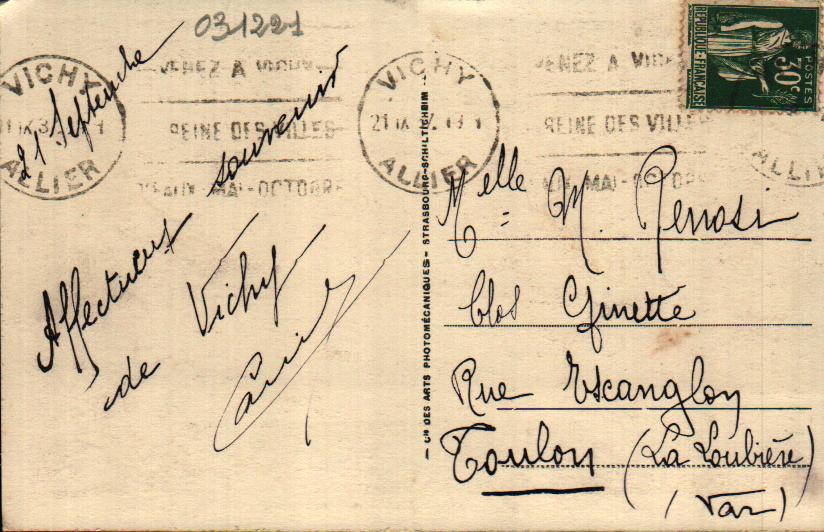 031221
21 Septembre
Affectueux souvenir
de Vichy
VICHY
ALLIER
VENEZ A VICHY
REINE DES VILLES
D'EAUX-MAI-OCTOBRE
VICHY
21 IX 37
ALLIER
VENEZ A VICHY
REINE DES VILLES
MAI-OCTOBRE
ALLIER
RÉPUBLIQUE FRANÇAISE
POSTES
30c
Cie DES ARTS PHOTOMÉCANIQUES - STRASBOURG-SCHILTIGHEIM
Melle M. Renosi
Clos Ginette
Rue Escanglon
Toulon (La Loubière)
(Var)